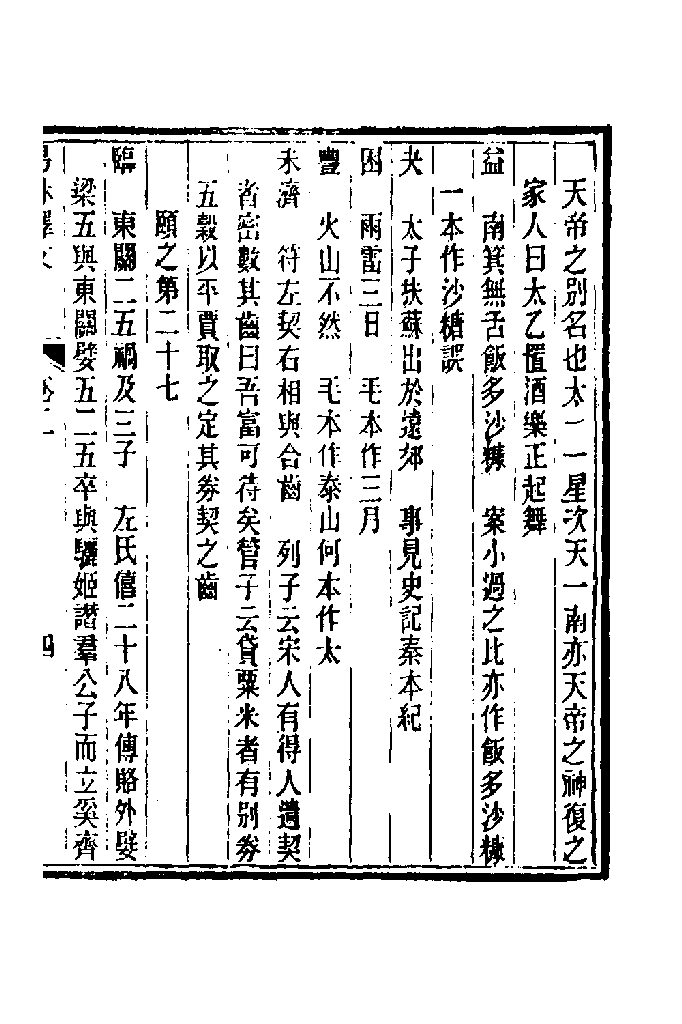 天帝之別名也太一一星次天一南亦天帝之神復之
家人曰太乙置酒樂正起舞
益　南箕無舌飯多沙糠　案小過之比亦作飯多沙糠
一本作沙糖誤
夬　太子扶蘇出於遠郊　事見史記秦本紀
困　雨雷三日　毛本作三月
豐　火山不然　毛本作泰山何本作太
未濟　符左契右相與合齒　列子云宋人有得人遺契
者密數其齒曰吾富可待矣管子云貸粟米者有別券
五穀以平賈取之定其券契之齒
頤之第二十七
臨　東關二五禍及三子　左氏僖二十八年傳賂外嬖
梁五與東關嬖五二五卒與驪姬譖羣公子而立奚齊
易林釋文　卷二　四